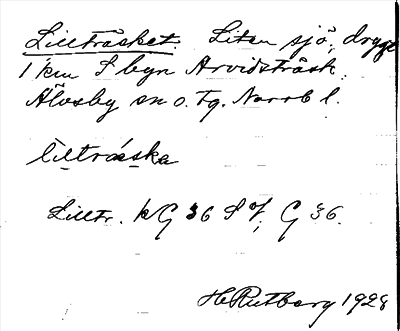 Lillträsket. Liten sjö, drygt
1 km S byn Arvidsträsk,
Älvsby sn o. tg. Norrb l.
lìltrǽska
Lilltr. kG 36 SV, G 36.
H Rutberg 1928